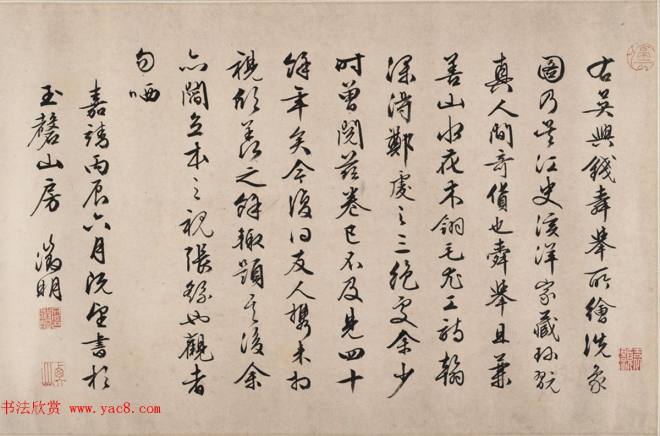 右吳興錢舜舉所繪洗象
圖乃吳江史溪洋家藏珍玩
真人間奇貨也舜舉且兼
善山水花木翎毛尤工詩翰
深得鄭虔之三絕矣余少
時曾閱茲卷已不及見四十
餘年矣今復同友人携來相
視欣羨之餘輒題其後余
亦閻立本之視張繇也觀者
勿哂
嘉靖丙辰六月既望書於
玉磬山房 徵明
书法欣赏 www.yac8.com